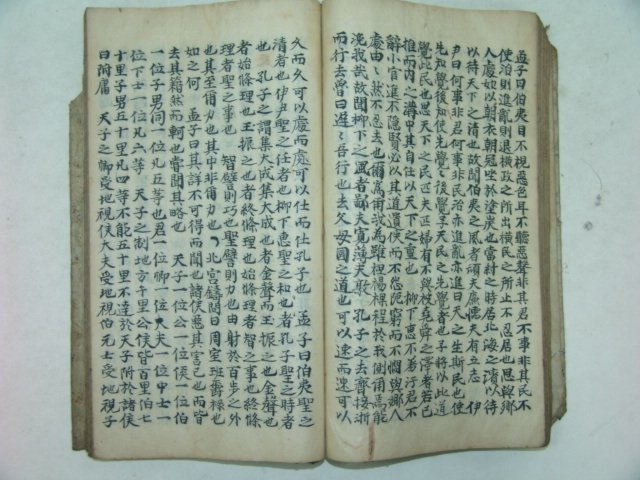 孟子曰伯夷目不視惡色耳不聽惡聲非其君不事非其民不
使治則進亂則退橫政之所出橫民之所止不忍居也思與鄉
人處如以朝衣朝冠坐於塗炭也當紂之時居北海之濱以待
以待天下之清也故聞伯夷之風者頑夫廉懦夫有立志 伊
尹曰何事非君何事非民治亦進亂亦進曰天之生斯民也使
先知覺後知使先覺覺後覺予天民之先覺者也予將以此道
覺此民也思天下之民匹夫匹婦有不與被堯舜之澤者若己
推而內之溝中其自任以天下之重也 柳下惠不羞汙君不
辭小官進不隱賢必以其道遺佚而不怨阨窮而不憫與鄉人
處由由然不忍去也爾爲爾我爲我雖袒裼裸裎於我側爾焉能
浼我哉故聞柳下惠之風者鄙夫寬薄夫敦 孔子之去齊接淅
而行去魯曰遲遲吾行也去父母國之道也可以速而速可以
久而久可以處而處可以仕而仕孔子也 孟子曰伯夷聖之
清者也伊尹聖之任者也柳下惠聖之和也者孔子聖之時者
也 孔子之謂集大成集大成也者金聲而玉振之也金聲也
者始條理也玉振之也者終條理也始條理者智之事也終條
理者聖之事也 智譬則巧也聖譬則力也由射於百步之外
也其至爾力也其中非爾力也 北宮錡問曰周室班爵祿也
如之何 孟子曰其詳不可得而聞也諸侯惡其害己也而皆
去其籍然而軻也嘗聞其略也 天子一位公一位侯一位伯
一位子男同一位凡五等也君一位卿一位大夫一位中士一
位下士一位凡六等 天子之制地方千里公侯皆百里伯七
十里子男五十里凡四等不能五十里不達於天子附於諸侯
曰附庸 天子之卿受地視侯大夫受地視伯元士受地視子